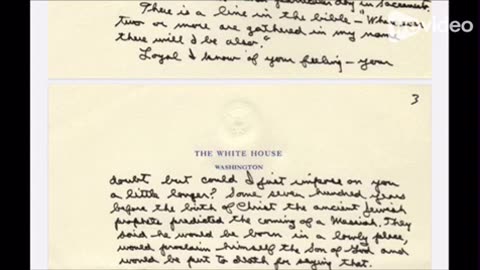 particular day in Sacramento.
There is a line in the bible – "
two or more are gathered in my name
there will I be also."
Loyal I know of your feeling – your
video
3
THE WHITE HOUSE
WASHINGTON
doubt but could I just impose on you
a little longer? Some seven hundred years
before the birth of Christ the ancient Jewish
prophets predicted the coming of a Messiah. They
said he would be born in a lowly place,
would proclaim himself the son of God and
would be put to death for saying that.